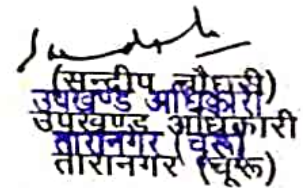 (सन्दीप चौधरी)
उपखण्ड अधिकारी
उपखण्ड अधिकारी
तारानगर (चूरू)
तारानगर (चूरू)